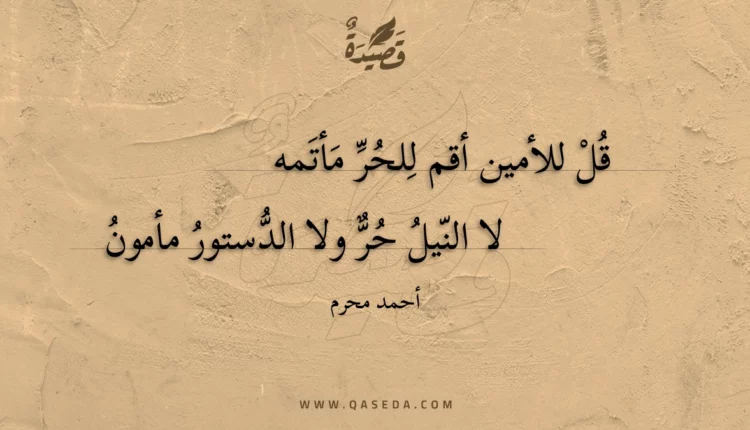 قَصِيدَةٌ
قُلْ للأمين أقم لِلحُرِّ مَأتَمه
لا النّيلُ حُرٌّ ولا الدُّستورُ مأمونُ
أحمد محرم
WWW.QASEDA.COM